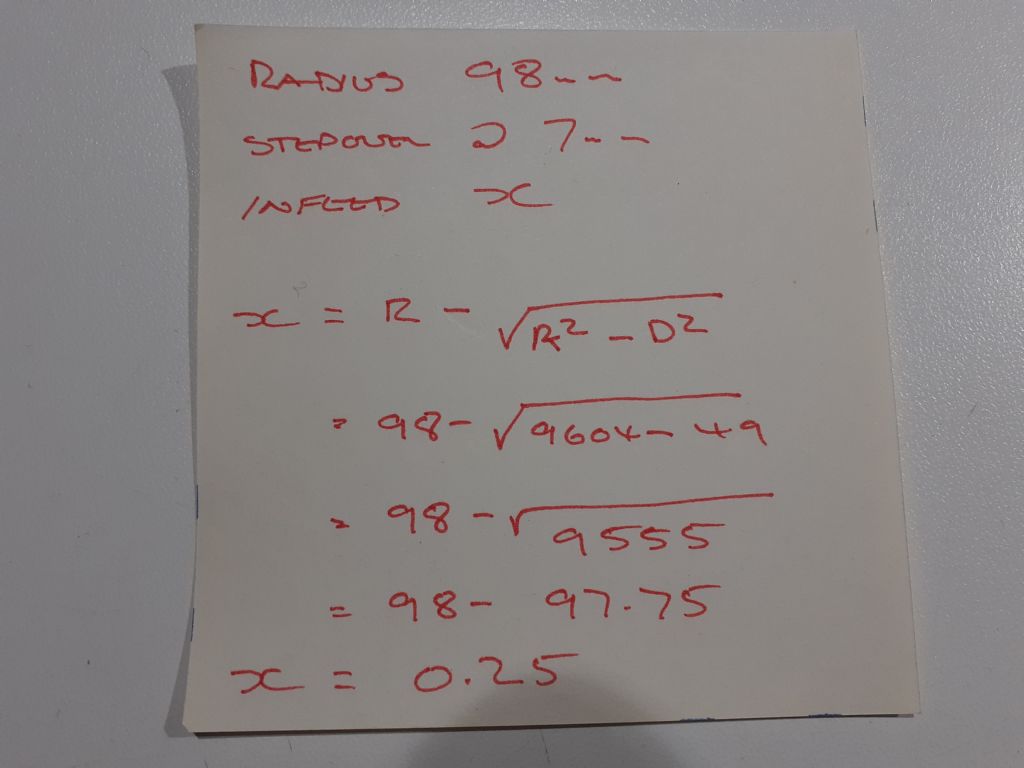 RADIUS 98mm
STEPOVER D 7mm
INFEED x
x = R - √R² - D²
= 98 - √9604 - 49
= 98 - √9555
= 98 - 97.75
x = 0.25